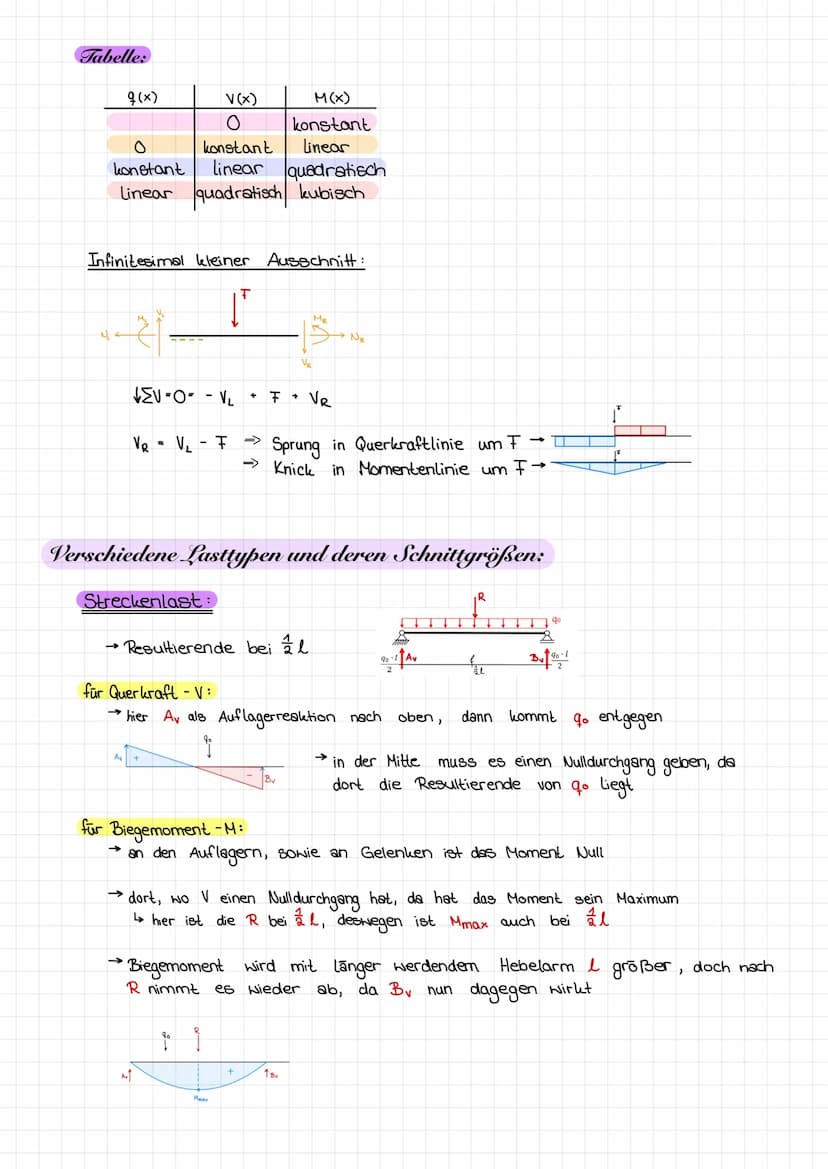 Tabelle:
q(x) V(x) M(x)
0 konstant
0 konstant linear
konstant linear quadratisch
linear quadratisch kubisch
Infinitesimal kleiner Ausschnitt:
F
M_L V_L M_R
N_L N_R
V_R
↓ΣV=0= - V_L + F + V_R
F
V_R = V_L - F ⇒ Sprung in Querkraftlinie um F →
⇒ Knick in Momentenlinie um F →
F
Verschiedene Lasttypen und deren Schnittgrößen:
Streckenlast:
R
q₀
→ Resultierende bei ½ l
q₀·l/2 A_v B_v q₀·l/2
½l
für Querkraft - V:
→ hier A_v als Auflagerreaktion nach oben, dann kommt q₀ entgegen
q₀
A_v + - B_v
→ in der Mitte muss es einen Nulldurchgang geben, da
dort die Resultierende von q₀ liegt
für Biegemoment - M:
→ an den Auflagern, sowie an Gelenken ist das Moment Null
→ dort, wo V einen Nulldurchgang hat, da hat das Moment sein Maximum
↳ her ist die R bei ½ l, deswegen ist Mmax auch bei ½ l
→ Biegemoment wird mit länger werdendem Hebelarm l größer, doch nach
R nimmt es wieder ab, da B_v nun dagegen wirkt
q₀ R
A_v + B_v
Mmax